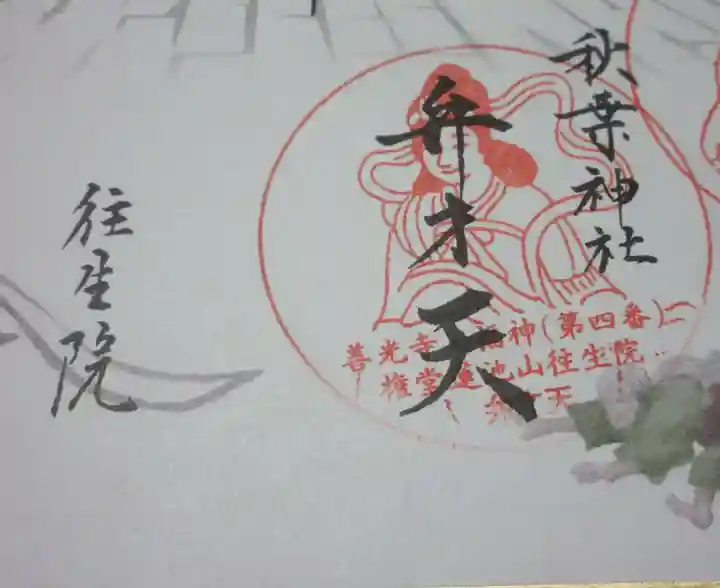 秋葉神社
弁才天
善光寺 福神(第四番)
権堂蓮池山往生院
往生院